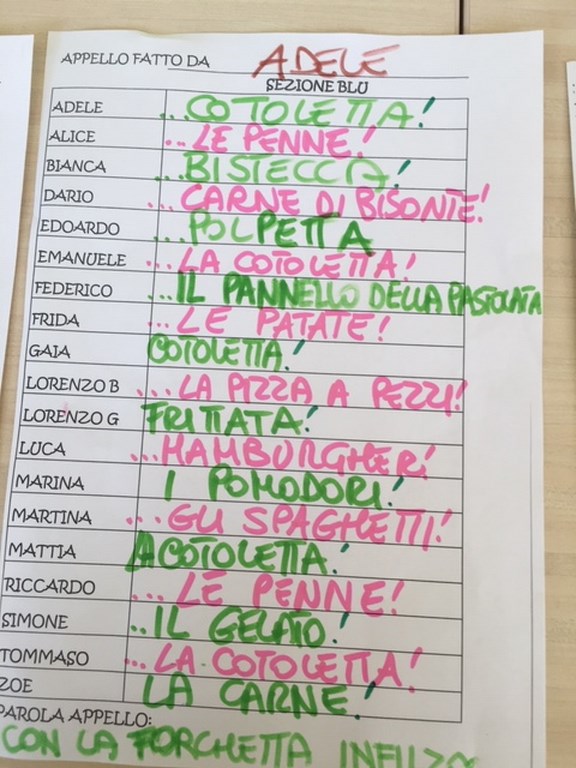 APPELLO FATTO DA ADELE
SEZIONE BLU
ADELE ...COTOLETTA!
ALICE ...LE PENNE!
BIANCA ...BISTECCA!
DARIO ...CARNE DI BISONTE!
EDOARDO ...POLPETTA
EMANUELE ...LA COTOLETTA!
FEDERICO ...IL PANNELLO DELLA
FRIDA ...LE PATATE!
GAIA COTOLETTA!
LORENZO B ...LA PIZZA A PEZZI!
LORENZO G FRITTATA!
LUCA ...HAMBURGHER!
MARINA I POMODORI!
MARTINA ...GLI SPAGHETTI!
MATTIA LA COTOLETTA!
RICCARDO ...LE PENNE!
SIMONE ..IL GELATO!
TOMMASO ...LA COTOLETTA!
ZOE LA CARNE!
PAROLA APPELLO:
CON LA FORCHETTA INFILZO